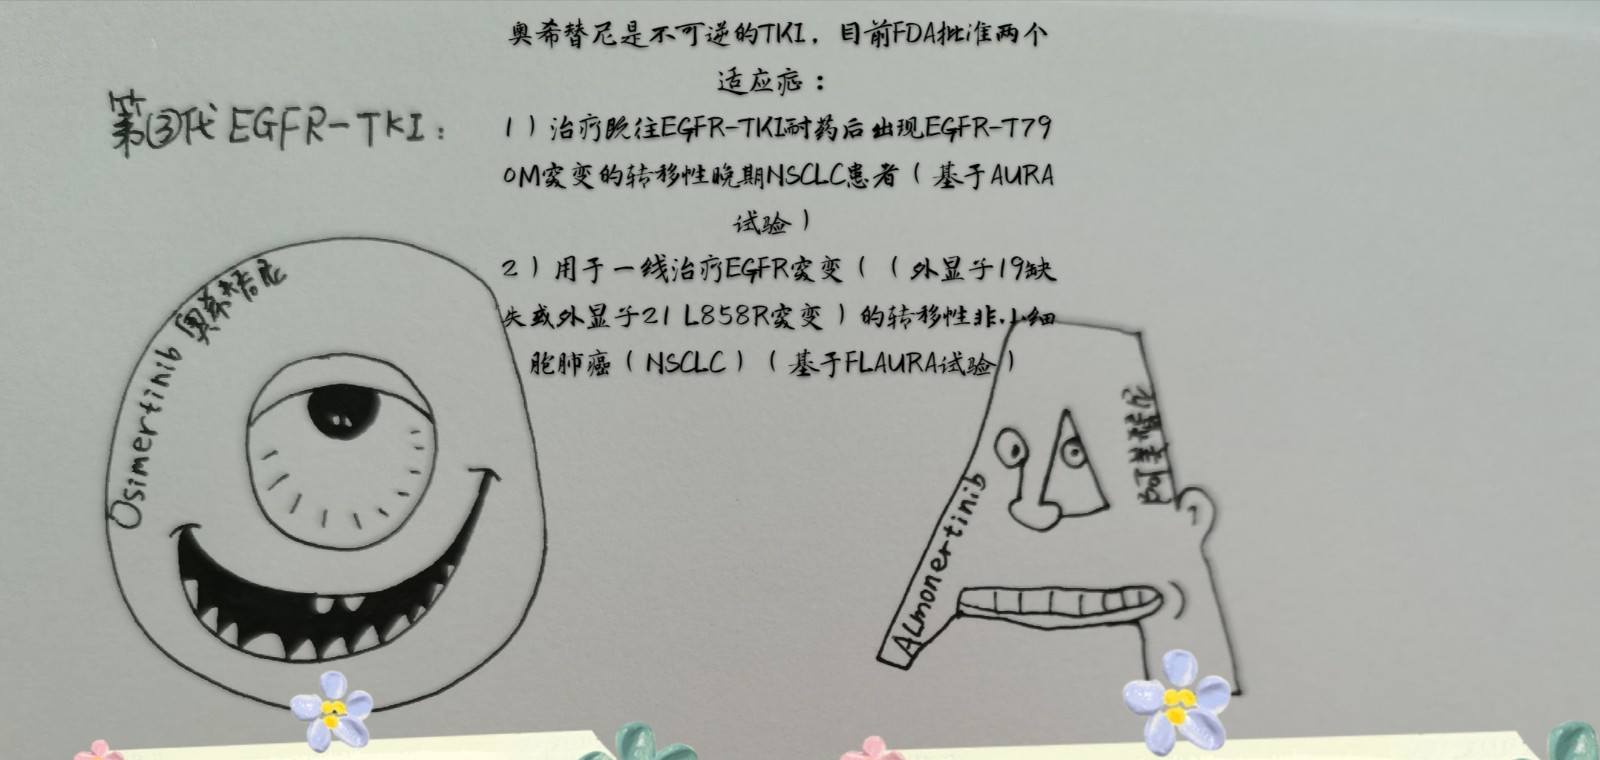 第③代 EGFR-TKI：
奥希替尼是不可逆的TKI，目前FDA批准两个
适应症：
1）治疗既往EGFR-TKI耐药后出现EGFR-T79
0M突变的转移性晚期NSCLC患者（基于AURA
试验）
2）用于一线治疗EGFR突变（（外显子19缺
失或外显子21 L858R突变）的转移性非小细
胞肺癌（NSCLC）（基于FLAURA试验）
Osimertinib 奥希替尼
ALmonertinib
阿美替尼